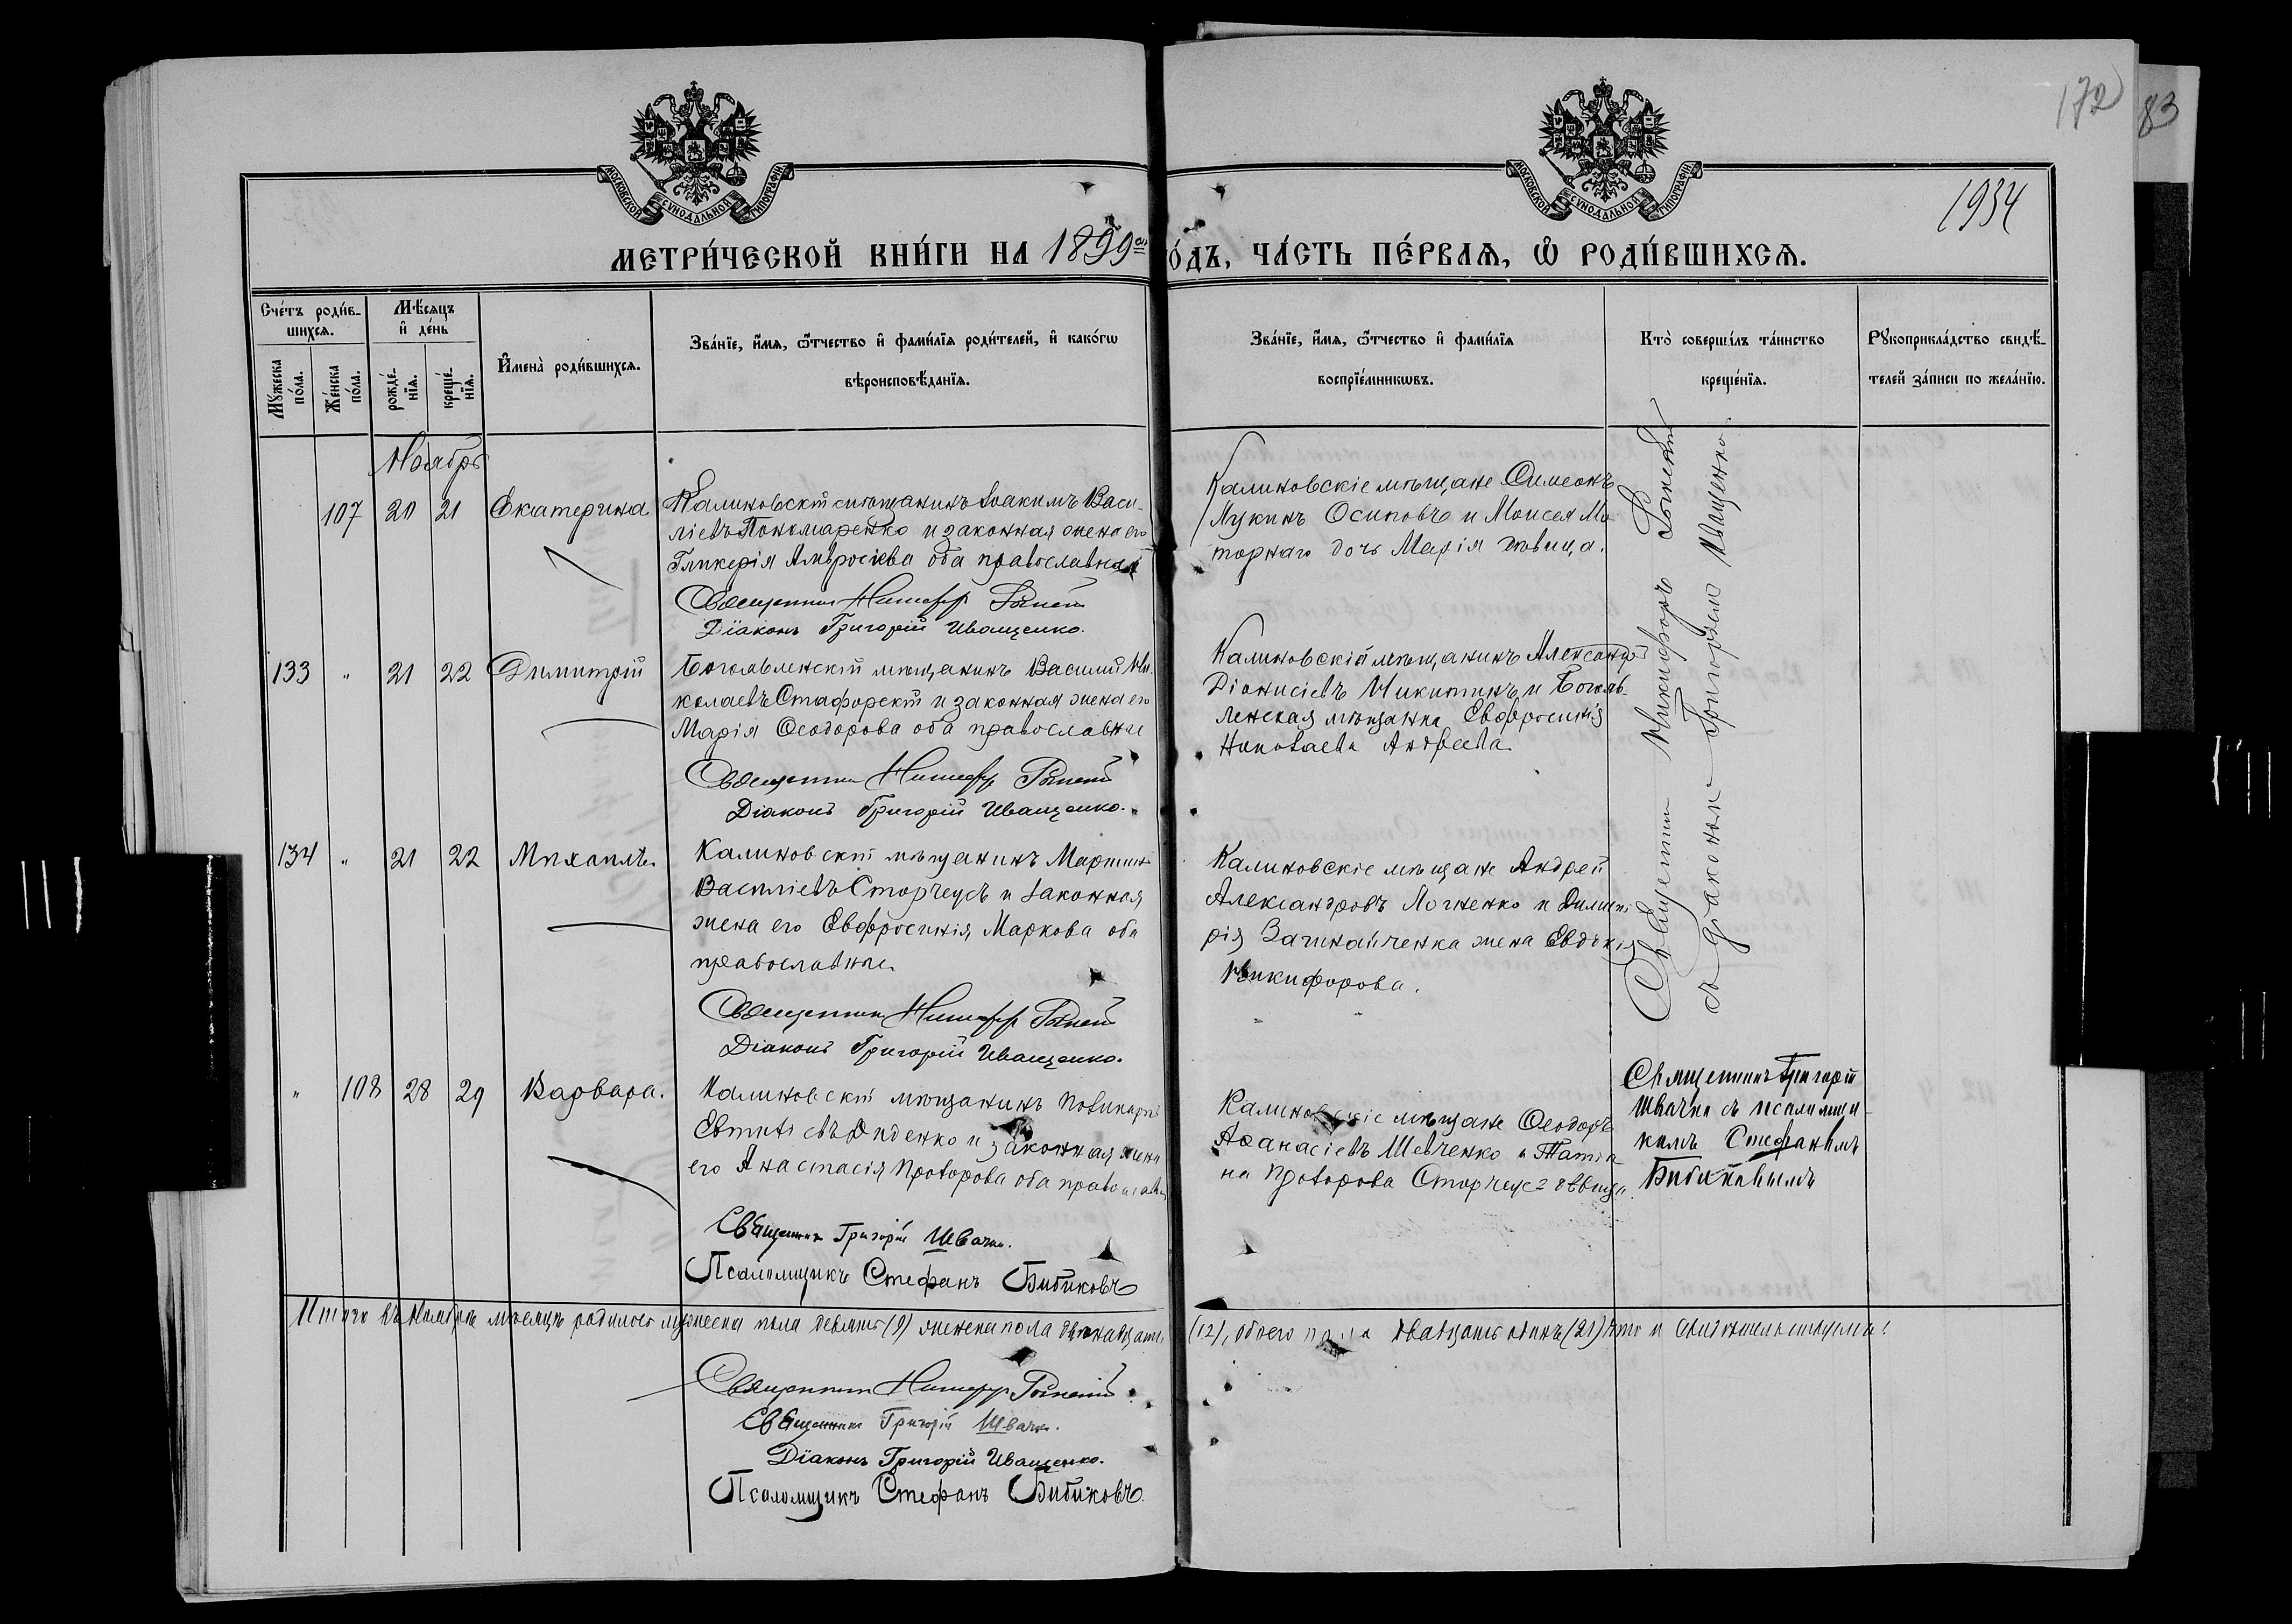 172
83
1934
МОСКОВСКОЙ СѴНОДАЛЬНОЙ ТИПОГРАФІИ
МОСКОВСКОЙ СѴНОДАЛЬНОЙ ТИПОГРАФІИ
МЕТРИ́ЧЕСКОЙ КНИ́ГИ НА 1899 го́дъ, ЧА́СТЬ ПЕ́РВАѦ, Ѡ҆ РОДИ́ВШИХСѦ.
Сче́тъ роди́в-
шихсѧ.
Мѣ́сяцъ
и҆ де́нь
Мꙋ́жеска
по́ла.
Же́нска
по́ла.
рожде́-
нїѧ.
креще́-
нїѧ.
И҆мена̀ роди́вшихсѧ.
Зва́нїе, и҆́мѧ, ѻ҆́тчество и҆ фами́лїѧ роди́телей, и҆ како́гѡ
вѣроисповѣ́данїѧ.
Зва́нїе, и҆́мѧ, ѻ҆́тчество и҆ фами́лїѧ
воспрїе́мникѡвъ.
Кто̀ соверши́лъ та́инство
креще́нїѧ.
Рꙋкоприкла́дство свидѣ́-
телей за́писи по жела́нїю.
Ноябрь
107 20 21 Екатерина
Калиновскій мѣщанинъ Іоакимъ Васи-
ліевъ Пономаренко и законная жена его
Гликерія Амвросіева оба православныи
Священник Никифор
Діаконъ Григорій Иващенко.
Калиновскіе мѣщане Симеонъ
Лукинъ Осиповъ и Моисея Мо
торнаго дочь Марія дѣвица.
Священник Никифоръ
съ діакономъ Григоріем Иващенко.
133 " 21 22 Димитрій
Богоявленскій мѣщанинъ Василий Ни-
колаевъ Стафорскій и законная жена его
Марія Ѳеодорова оба православные
Священник Никифор
Діаконъ Григорій Иващенко.
Калиновскій мѣщанинъ Александръ
Діонисіевъ Никитинъ и Богояв-
ленская мѣщанка Евфросинія
Николаева Андреева.
134 " 21 22 Михаилъ.
Калиновскій мѣщанинъ Мартинъ
Василіевъ Сторчеусъ и законная
жена его Евфросинія Маркова оба
православные.
Священник Никифор
Діаконъ Григорій Иващенко.
Калиновскіе мѣщане Андрей
Александровъ Логненко и Димит
рія жена Евдокія
Никифорова.
" 108 28 29 Варвара.
Калиновскій мѣщанинъ Поликарпъ
Диденко и законная жена
его Анастасія Прохорова оба православн
Священникъ Григорій Швачка.
Псаломщикъ Стефанъ Бибиковъ
Калиновскіе мѣщане Ѳеодоръ
Аѳанасіевъ Шевченко и Татіа
на Прохорова Сторчеус дѣвица.
Священникъ Григорій
Швачка съ псаломщи-
комъ Стефаномъ
Бибиковымъ
Итого въ Ноябрѣ мѣсяцѣ родилось мужеска пола девять (9) женска пола двѣнадцать (12), обоего пола двадцать одинъ (21) что и свидѣтельствуемъ:
Священник Никифор
Священник Григорій Швачка.
Діаконъ Григорій Иващенко.
Псаломщикъ Стефанъ Бибиковъ.